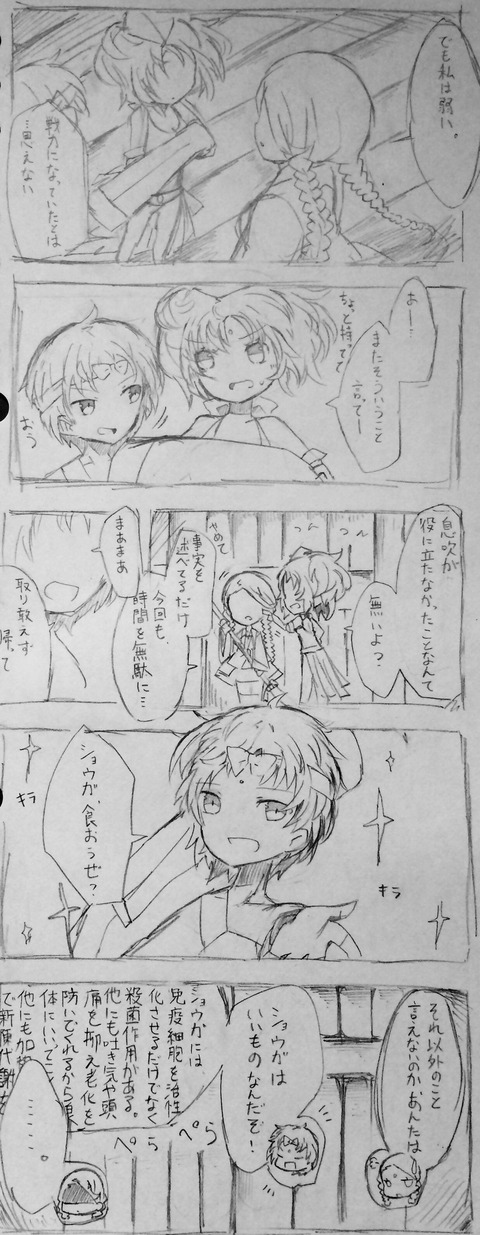 でも私は弱い。
戦力になっていたとは
…思えない
あー…
またそういうこと
言ってー
ちょっと持ってて
おう
息吹が
役に立たなかったことなんて
無いよっ?
つんつん
やめて
事実を
述べてるだけ
今回も、
時間を無駄に…
まあまあ
取り敢えず
帰って
ショウガ、食おうぜ?
キラ
キラ
それ以外のこと
言えないのか、あんたは
ショウガは
いいものなんだぞ!
ショウガには
免疫細胞を活性
化させるだけでなく
殺菌作用がある。
他にも吐き気や頭
痛を抑え老化を
防いでくれるから
体にいいでこ
他にも加
で新陳代謝
ぺらぺら
……。